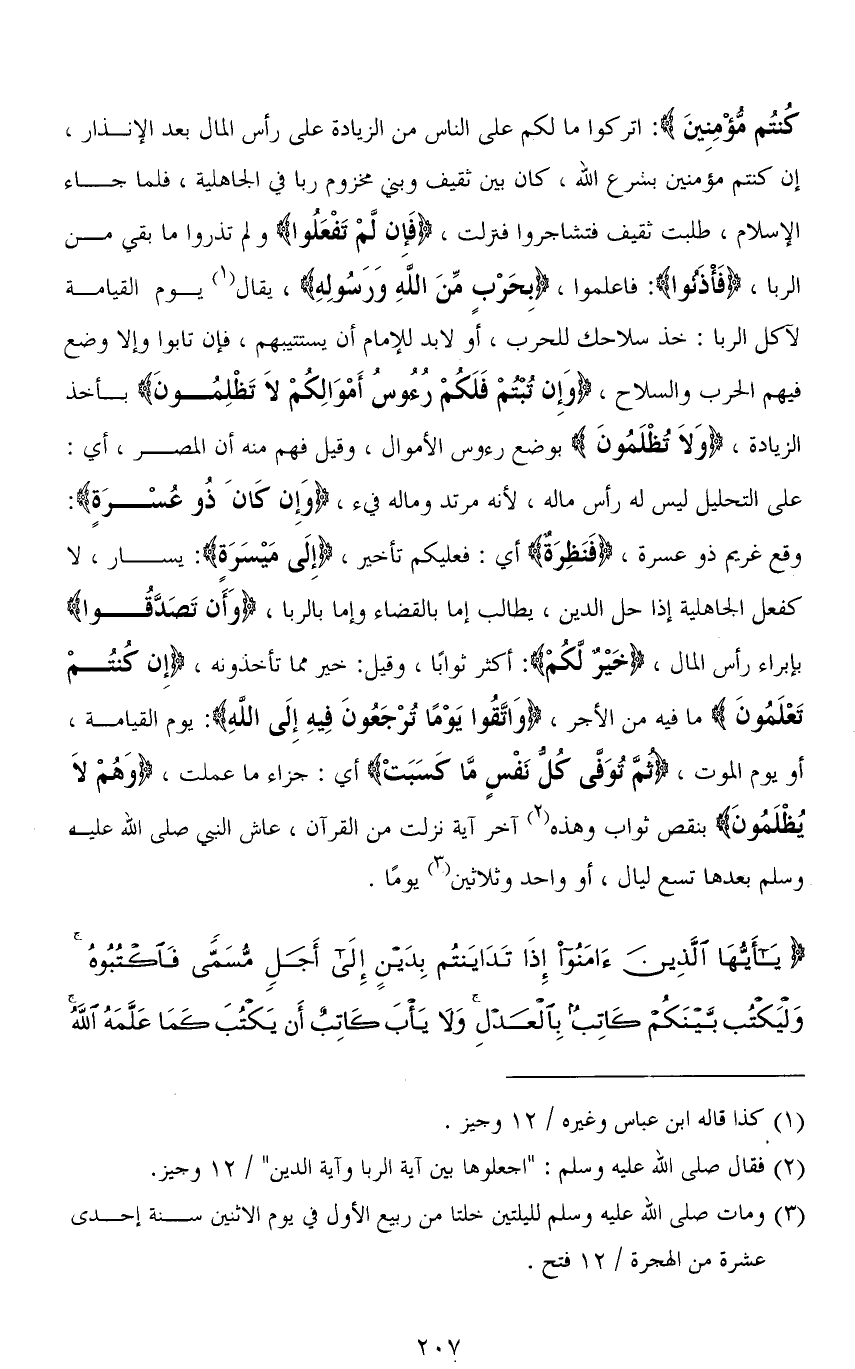 كُنتُم مُّؤْمِنِينَ ﴾: اتركوا ما لكم على الناس من الزيادة على رأس المال بعد الإنـذار ،
إن كنتم مؤمنين بشرع الله ، كان بين ثقيف وبني مخزوم ربا في الجاهلية ، فلما جـــاء
الإسلام ، طلبت ثقيف فتشاجروا فنزلت ، ﴿فَإِن لَّمْ تَفْعَلُوا﴾ و لم تذروا ما بقي مــن
الربا ، ﴿فَأْذَنُوا﴾: فاعلموا ، ﴿بِحَرْبٍ مِّنَ اللَّهِ وَرَسُولِهِ﴾ ، يقال(١) يــوم القيامــة
لآكل الربا : خذ سلاحك للحرب ، أو لابد للإمام أن يستتيبهم ، فإن تابوا وإلا وضع
فيهم الحرب والسلاح ، ﴿وَإِن تُبْتُمْ فَلَكُمْ رُءُوسُ أَمْوَالِكُمْ لاَ تَظْلِمُــونَ﴾ بــأخذ
الزيادة ، ﴿وَلاَ تُظْلَمُونَ ﴾ بوضع رءوس الأموال ، وقيل فهم منه أن المصــر ، أي :
على التحليل ليس له رأس ماله ، لأنه مرتد وماله فيء ، ﴿وَإِن كَانَ ذُو عُسْــرَةٍ﴾:
وقع غريم ذو عسرة ، ﴿فَنَظِرَةٌ﴾ أي : فعليكم تأخير ، ﴿إِلَى مَيْسَرَةٍ﴾: يســار ، لا
كفعل الجاهلية إذا حل الدين ، يطالب إما بالقضاء وإما بالربا ، ﴿وَأَن تَصَدَّقُــوا﴾
بإبراء رأس المال ، ﴿خَيْرٌ لَّكُمْ﴾: أكثر ثوابًا ، وقيل: خير مما تأخذونه ، ﴿إِن كُنتُــمْ
تَعْلَمُونَ ﴾ ما فيه من الأجر ، ﴿وَاتَّقُوا يَوْمًا تُرْجَعُونَ فِيهِ إِلَى اللَّهِ﴾: يوم القيامــة ،
أو يوم الموت ، ﴿ثُمَّ تُوَفَّى كُلُّ نَفْسٍ مَّا كَسَبَتْ﴾ أي : جزاء ما عملت ، ﴿وَهُمْ لاَ
يُظْلَمُونَ﴾ بنقص ثواب وهذه(٢) آخر آية نزلت من القرآن ، عاش النبي صلى الله عليـه
وسلم بعدها تسع ليال ، أو واحد وثلاثين(٣) يومًا .
﴿ يَـٰٓأَيُّهَا ٱلَّذِينَ ءَامَنُوٓا۟ إِذَا تَدَايَنتُم بِدَيْنٍ إِلَىٰٓ أَجَلٍ مُّسَمًّى فَٱكْتُبُوهُ ۚ
وَلْيَكْتُب بَّيْنَكُمْ كَاتِبٌۢ بِٱلْعَدْلِ ۚ وَلَا يَأْبَ كَاتِبٌ أَن يَكْتُبَ كَمَا عَلَّمَهُ ٱللَّهُ ۚ
(١) كذا قاله ابن عباس وغيره / ١٢ وجيز .
(٢) فقال صلى الله عليه وسلم : "اجعلوها بين آية الربا وآية الدين" / ١٢ وجيز.
(٣) ومات صلى الله عليه وسلم لليلتين خلتا من ربيع الأول في يوم الاثنين ســنة إحــدى
عشرة من الهجرة / ١٢ فتح .
٢٠٧